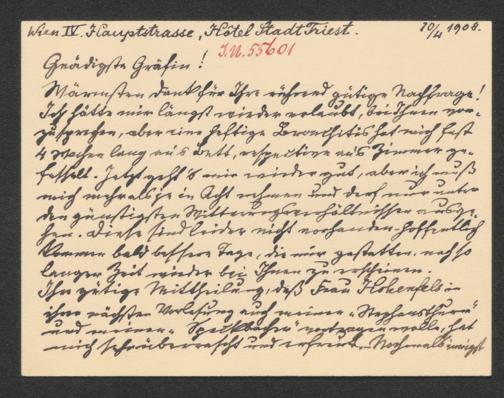 Wien IV. Hauptstrasse, Hôtel Stadt Triest. 20/4 1908.
I.N. 55601
Gnädigste Gräfin!
Wärmsten Dank für Ihre rührend gütige Nachfrage!
Ich hätte mir längst wieder erlaubt, bei Ihnen vor-
zusprechen, aber eine heftige Bronchitis hat mich fast
4 Wochen lang an's Bett, respective an's Zimmer ge-
fesselt. Jetzt geht's mir wieder gut, aber ich muß
mich mehr als je in Acht nehmen und darf nur unter
den günstigsten Witterungsverhältnissen ausge-
hen. Diese sind leider nicht vorhanden. Hoffentlich
kommen bald bessere Tage, die mir gestatten, nach so
langer Zeit wieder bei Ihnen zu erscheinen.
Ihre gütige Mittheilung, daß Frau Hohenfels in
ihrer nächsten Vorlesung auch meinen "Stephansthurm"
und meinen "Speckbacher" vortragen wolle, hat
mich sehr überrascht und erfreut. Nochmals innigst